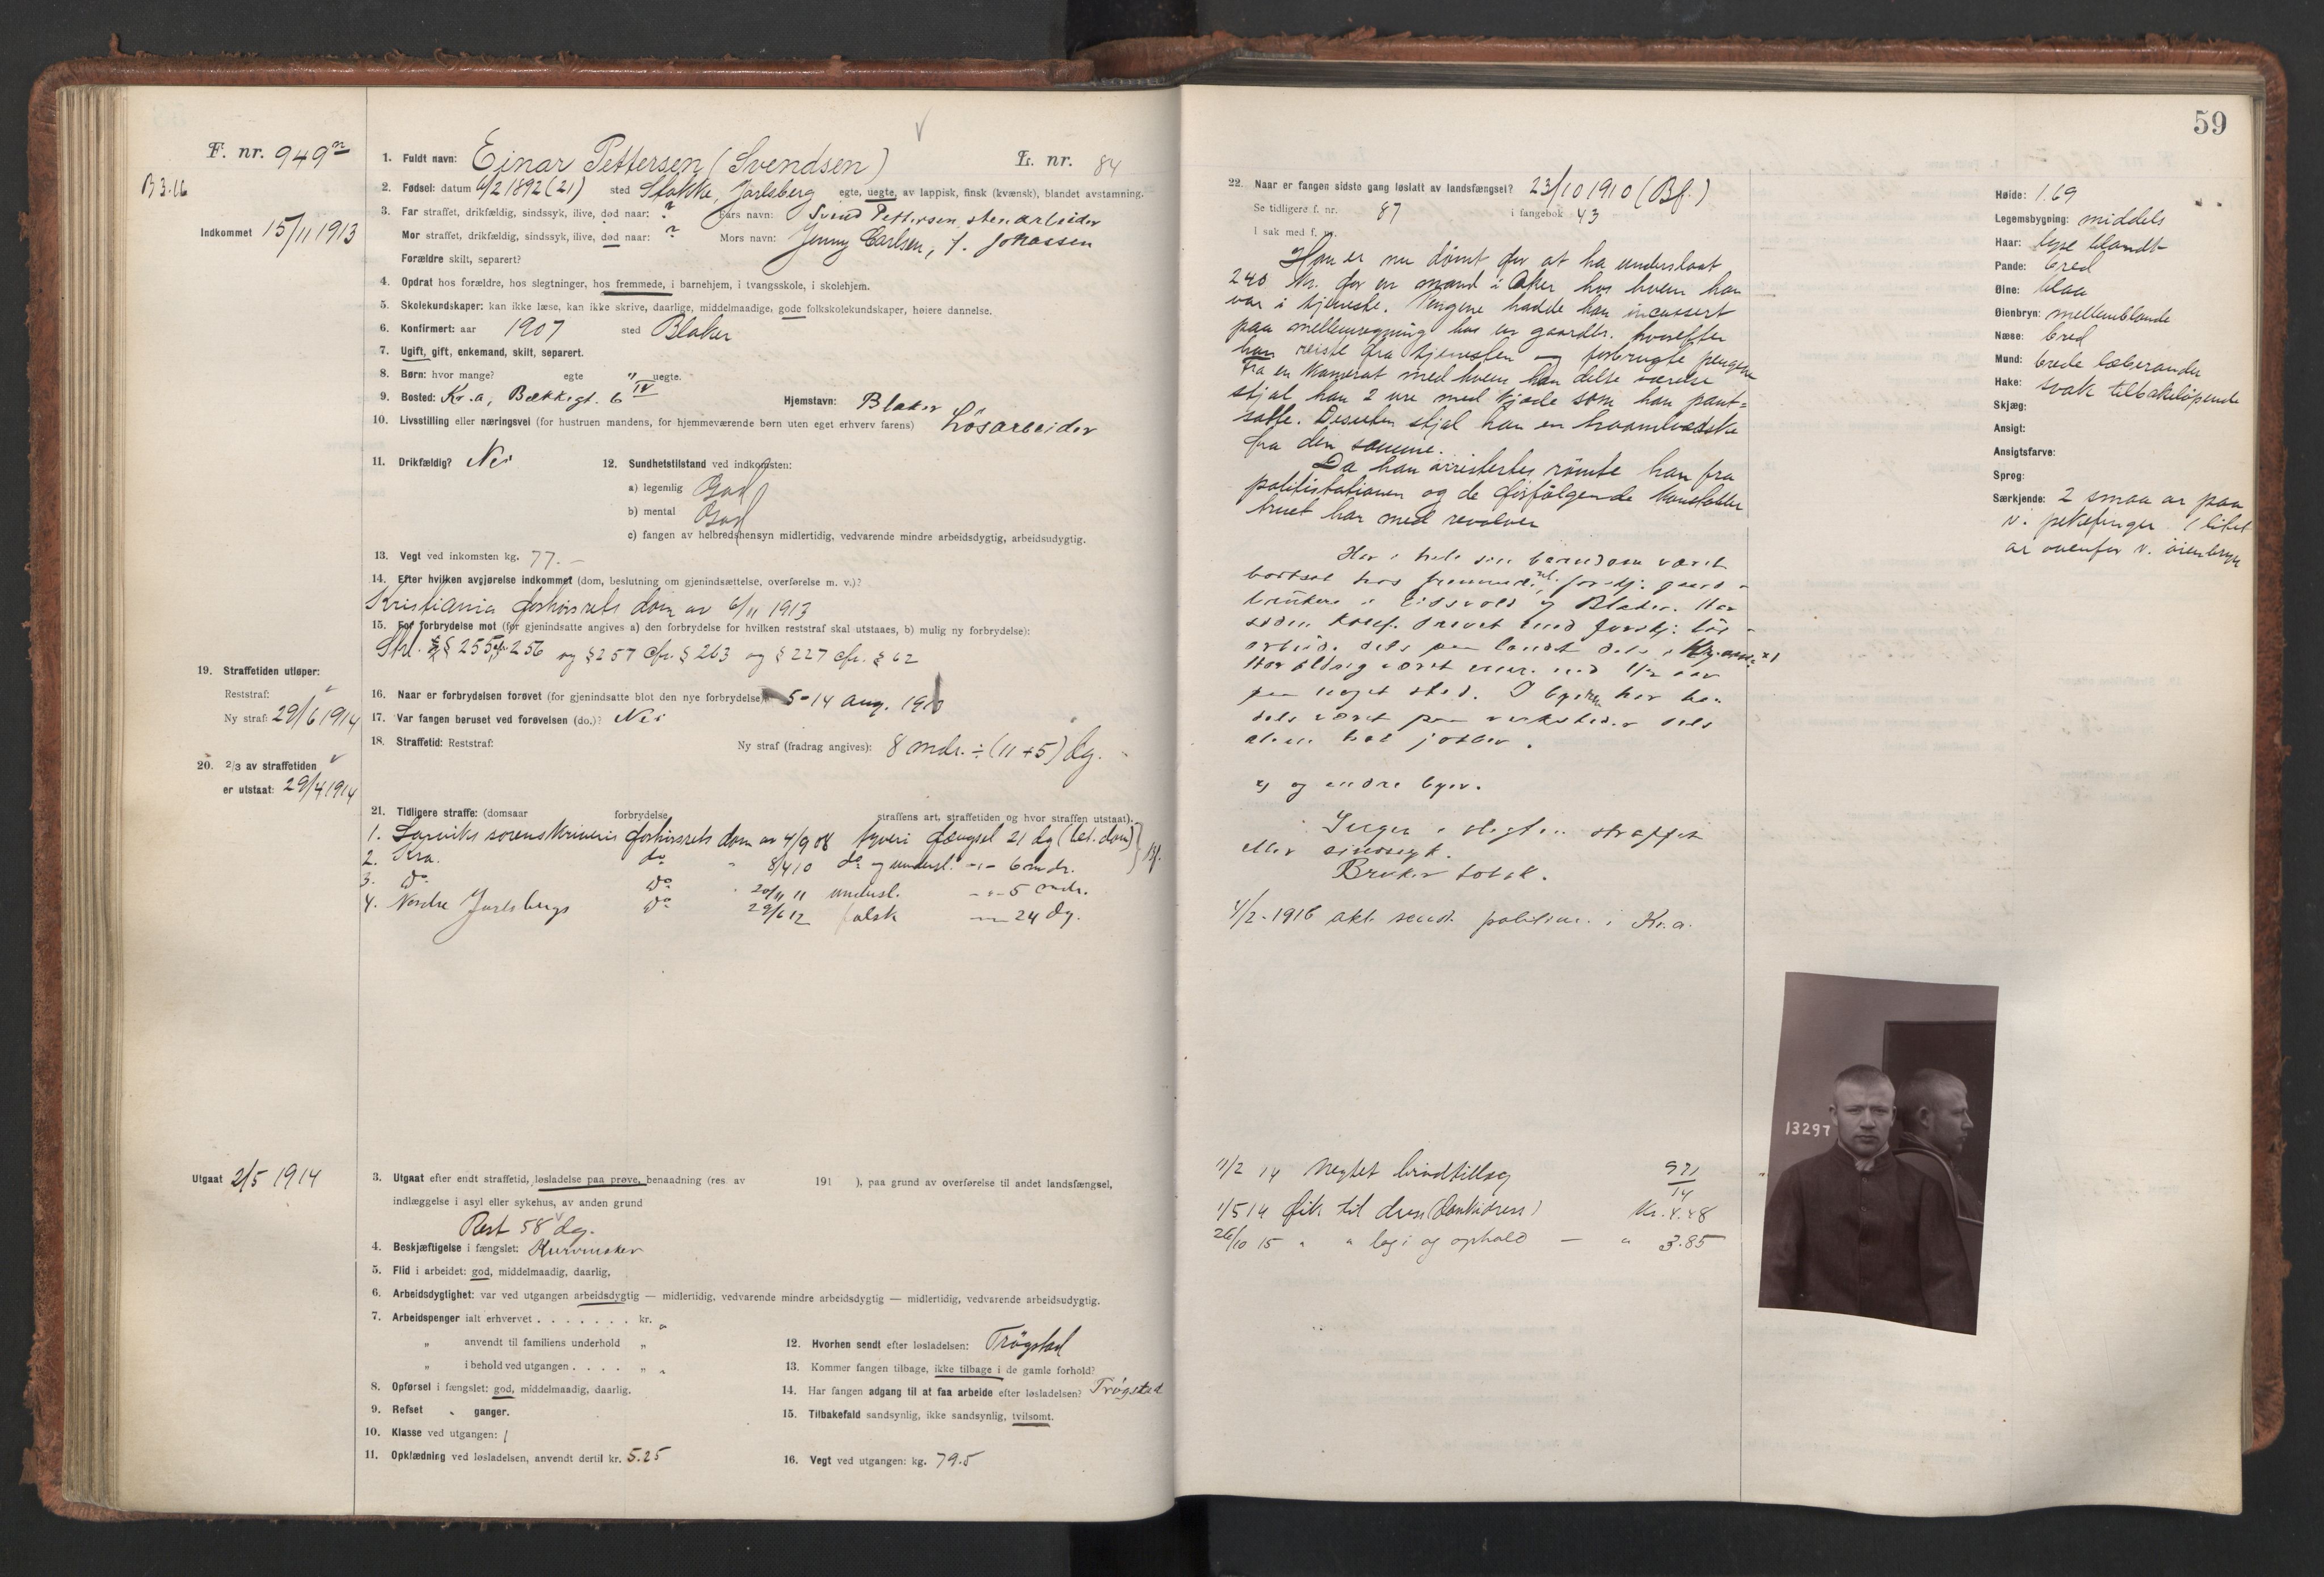 F. nr. 949
B 3.16
Indkommet 15/11 1913
1. Fuldt navn: Einar Pettersen (Svendsen)
L. nr. 84
2. Fødsel: datum 6/2 1892 (21) sted Stokke, Jarlsberg egte, uegte, av lappisk, finsk (kvænsk), blandet avstamning.
3. Far straffet, drikfældig, sindssyk, ilive, død naar: ? Fars navn: Svend Pettersen, stenarbeider
Mor straffet, drikfældig, sindssyk, ilive, død naar: ? Mors navn: Jenny Carlsen, f. Johassen
Forældre skilt, separert?
4. Opdrat hos forældre, hos slegtninger, hos fremmede, i barnehjem, i tvangsskole, i skolehjem.
5. Skolekundskaper: kan ikke læse, kan ikke skrive, daarlige, middelmaadige, gode folkskolekundskaper, høiere dannelse.
6. Konfirmert: aar 1907 sted Blaker
7. Ugift, gift, enkemand, skilt, separert.
8. Børn: hvor mange? egte " uegte.
9. Bosted: Kr.a, Bekkegt. 6 IV Hjemstavn: Blaker
10. Livsstilling eller næringsvei (for hustruen mandens, for hjemmeværende børn uten eget erhverv farens) Løsarbeider
11. Drikfældig? Nei
12. Sundhetstilstand ved indkomsten:
a) legemlig God
b) mental God
c) fangen av helbredshensyn midlertidig, vedvarende mindre arbeidsdygtig, arbeidsudygtig.
13. Vegt ved inkomsten kg. 77.-
14. Efter hvilken avgjørelse indkommet (dom, beslutning om gjenindsættelse, overførelse m. v.)?
Kristiania forhørsrets dom av 6/11 1913
15. For forbrydelse mot (for gjenindsatte angives a) den forbrydelse for hvilken reststraf skal utstaaes, b) mulig ny forbrydelse):
Strl. §§ 255 cfr 256 og § 257 cfr. § 263 og § 227 cfr. § 62
19. Straffetiden utløper:
Reststraf:
Ny straf: 29/6 1914
16. Naar er forbrydelsen forøvet (for gjenindsatte blot den nye forbrydelse) 5-14 aug. 191
17. Var fangen beruset ved forøvelsen (do.)? Nei
18. Straffetid: Reststraf: Ny straf (fradrag angives): 8 mdr. ÷ (11 + 5) dg.
20. 2/3 av straffetiden
er utstaat: 29/4 1914
21. Tidligere straffe: (domsaar forbrydelse straffens art, straffetiden og hvor straffen utstaat).
1. Larviks sorenskriveris forhørsrets dom av 4/9 08 tyveri fængsel 21 dg (bet. dom) } Bf.
2. Kra. do " 8/4 10 do og undersl. -"- 6 mdr.
3. do do " 20/11 11 undersl. -"- 5 mdr.
4. Nordre Jarlsbergs do 29/6 12 falsk — 24 dg.
Utgaat 2/5 1914
3. Utgaat efter endt straffetid, løsladelse paa prøve, benaadning (res. av 191 ), paa grund av overførelse til andet landsfængsel,
indlæggelse i asyl eller sykehus, av anden grund
Rest 58 dg.
4. Beskjæftigelse i fængslet: Kurvmaker
5. Flid i arbeidet: god, middelmaadig, daarlig.
6. Arbeidsdygtighet: var ved utgangen arbeidsdygtig — midlertidig, vedvarende mindre arbeidsdygtig — midlertidig, vedvarende arbeidsudygtig.
7. Arbeidspenger ialt erhvervet . . . . . . . kr. "
" anvendt til familiens underhold "
" i behold ved utgangen . . . . " "
8. Opførsel i fængslet: god, middelmaadig, daarlig.
9. Refset " ganger.
10. Klasse ved utgangen: 1
11. Opklædning ved løsladelsen, anvendt dertil kr. 5.25
12. Hvorhen sendt efter løsladelsen: Trøgstad
13. Kommer fangen tilbage, ikke tilbage i de gamle forhold?
14. Har fangen adgang til at faa arbeide efter løsladelsen? Trøgstad
15. Tilbakefald sandsynlig, ikke sandsynlig, tvilsomt.
16. Vegt ved utgangen: kg. 79.5
59
22. Naar er fangen sidste gang løslatt av landsfængsel? 23/10 1910 (Bf.)
Se tidligere f. nr. 87 i fangebok 43
I sak med f. nr.
Han er nu dømt for at ha underslaat
240 Kr. for en mand i Aker hos hvem han
var i tjeneste. Pengene hadde han incassert
paa mellemregning hos en gaardbr. hvorefter
han reiste fra tjenesten og forbrugte pengene
Fra en Kamerat med hvem han delte værelse
stjal han 2 ure med kjæde som han pant=
satte. Desuten stjal han en haandvæske
fra den samme.
Da han arrestertes rømte han fra
politistationen og de forfølgende konstabler
truet han med revolver
Har i hele sin barndom været
bortsat hos fremmede, forskj. gaard-
brukere i Eidsvold og Blaker. Har
siden konf. drevet med forskj. løs-
arbeide dels paa landet dels i Kr.ania x)
Har aldrig været mer end 1/2 aar
paa noget sted. I byerne har han
dels været paa verksteder dels
alene hat jobber.
x) og andre byer.
Ingen i slegten straffet
eller sindssyk.
Bruker tobak.
4/2-1916 akt. sendt politim. i Kr.a.
11/2 14 Negtet brødtillæg 971/14
1/5 14 fik til dress (dankidress) Kr. 4.48
26/10 15 " " logi og ophold — " 3.85
Høide: 1.69
Legemsbygning: middels
Haar: lyse blandt
Pande: bred
Øine: blaa
Øienbryn: mellemblonde
Næse: bred
Mund: brede læberander
Hake: svak tilbakeløpende
Skjæg:
Ansigt:
Ansigtsfarve:
Sprog:
Særkjende: 2 smaa ar paa
v. pekefinger 1 litet
ar ovenfor v. øienbryn
13297